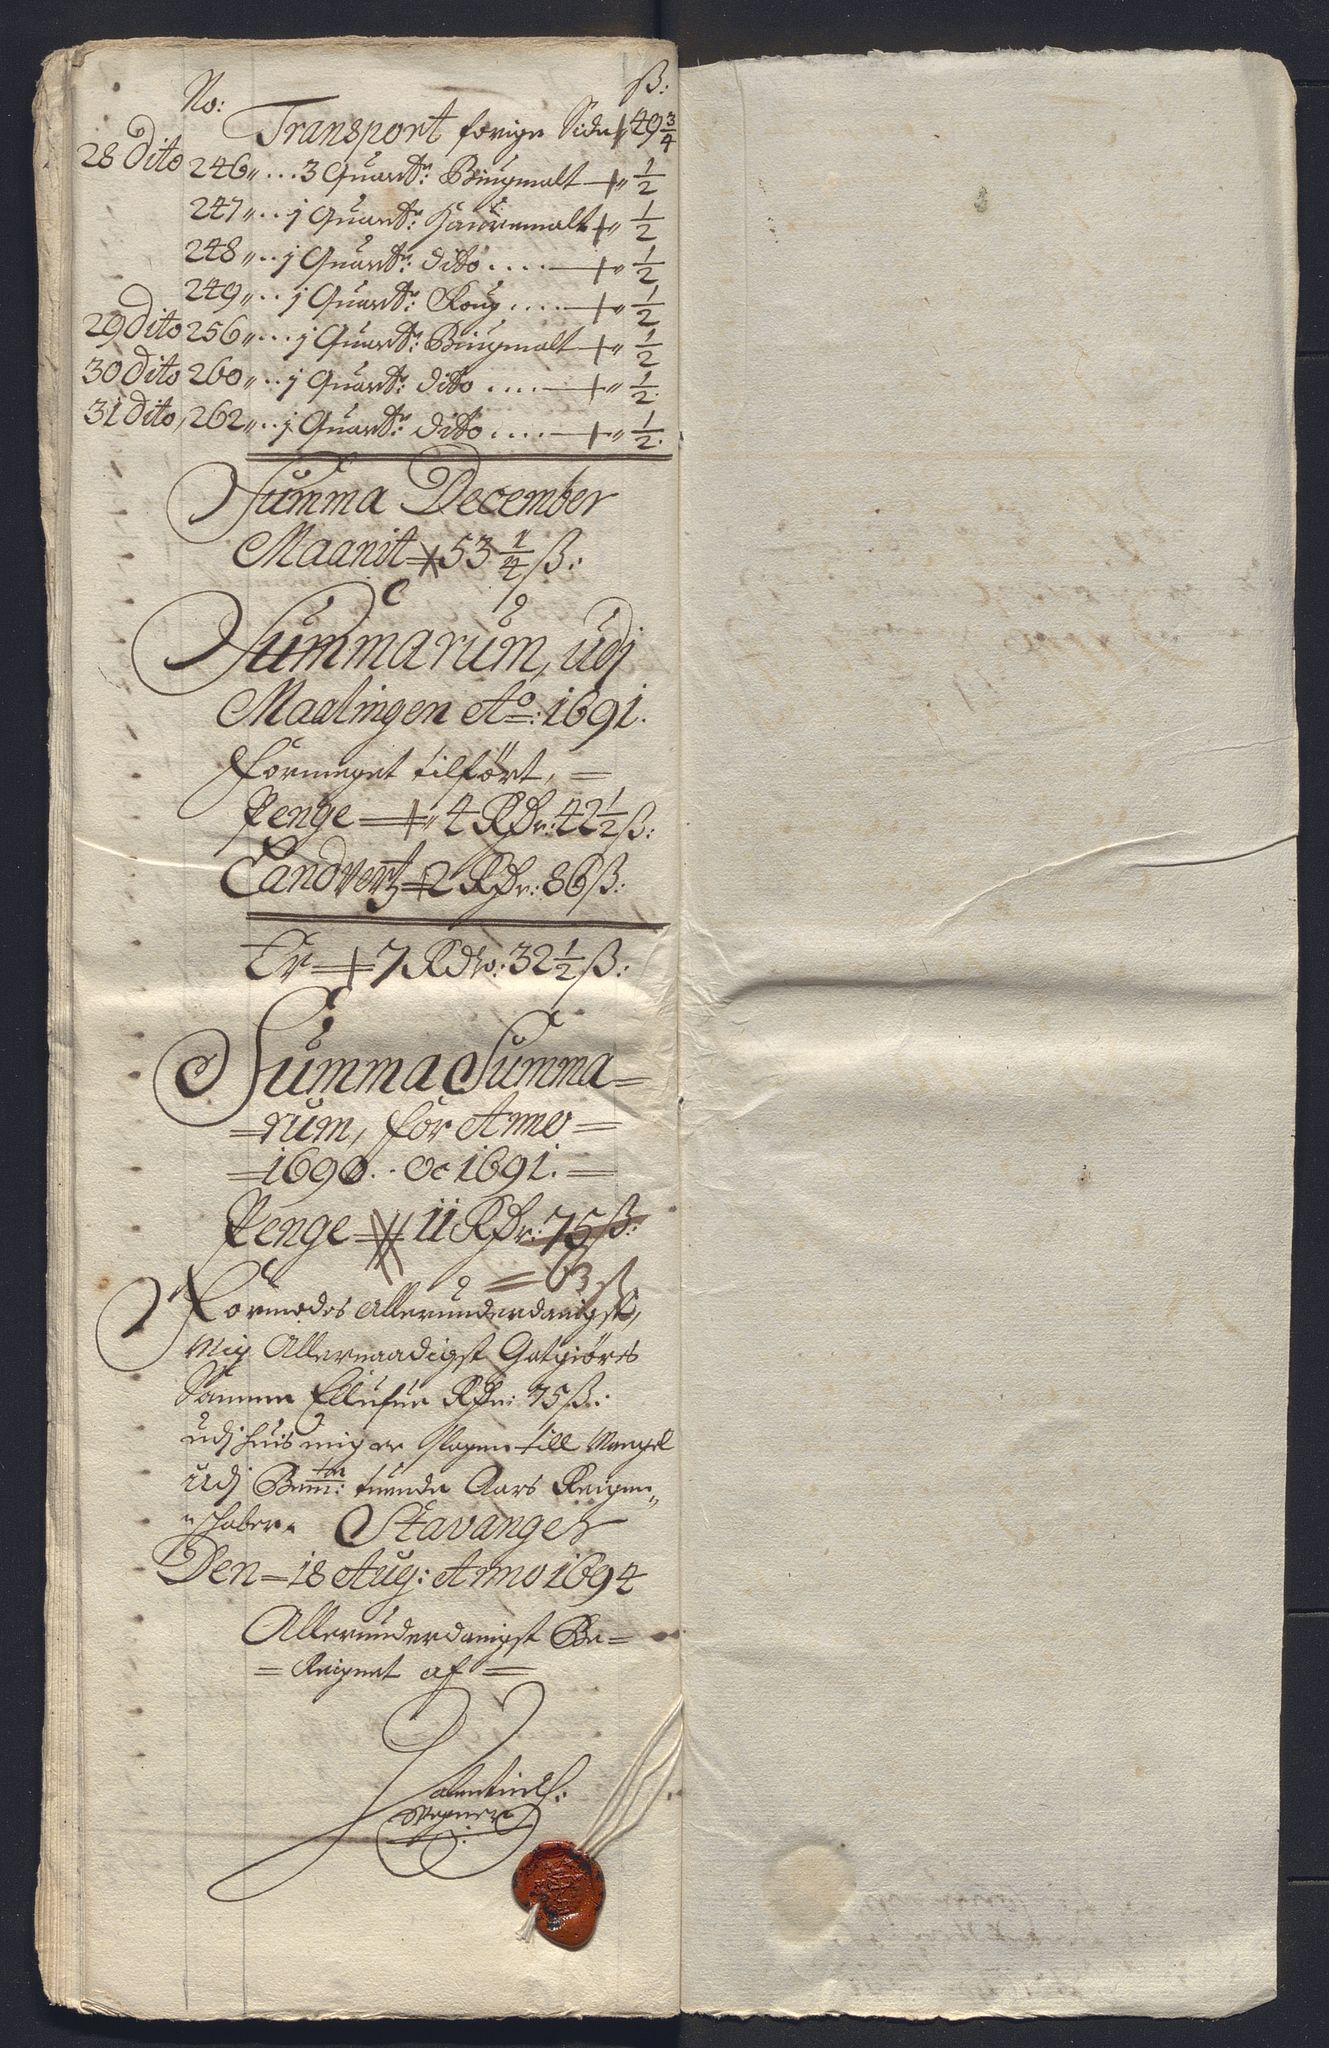 No: ß:
Transport forige Side 49 3/4
28 Dito 246 ,, ... 3 Quart: Biugmalt ,, 1/2
247 ,, .. j Quart: Haufremalt ,, 1/2
248 ,, .. j Quart: dito .... ,, 1/2
249 ,, .. j Quart: Roug .... ,, 1/2
29 Dito 256 ,, ... j Quart: Biugmalt ,, 1/2
30 Dito 260 ,, .. j Quart: dito .... ,, 1/2
31 Dito, 262 ,, .. j Quart: dito .... ,, 1/2
Summa December
Maanit 53 1/4 ß:
Summarum, udj
Maalingen Ao: 1691.
Formeget tilført,
Penge 4 Rdr: 42 1/2 ß:
Landvert 2 Rdr: 86 ß:
Er 7 Rdlr: 32 1/2 ß:
Summa Summa=
=rum, for Anno=
=1690. oc 1691.=
Penge 11 Rdr: 75 ß:
= 63 ß
Formodes Allerunderdanigst,
Mig Allernaadigst Gotgiøres
Samme Ellufue Rdr: 75 ß:
udj huis mig er slagen till Mangel
udj Bemte: tuende Aars Reigen„
„schaber. Stavanger
Den 18 Aug: Anno 1694
Allerunderdanigst Be=
=Reignet af=
Valentin
Wegner